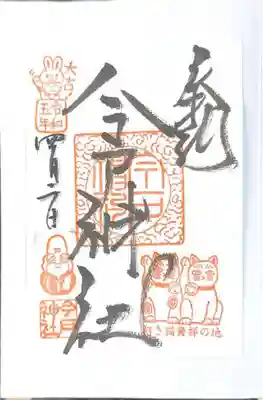 奉拝
今戸神社
大吉
令和
五年
四月
招き猫発祥の地
今戸
神社